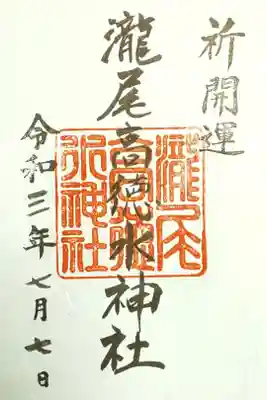 祈開運
瀧尾高徳水神社
令和三年七月七日
瀧尾
高徳
水神社